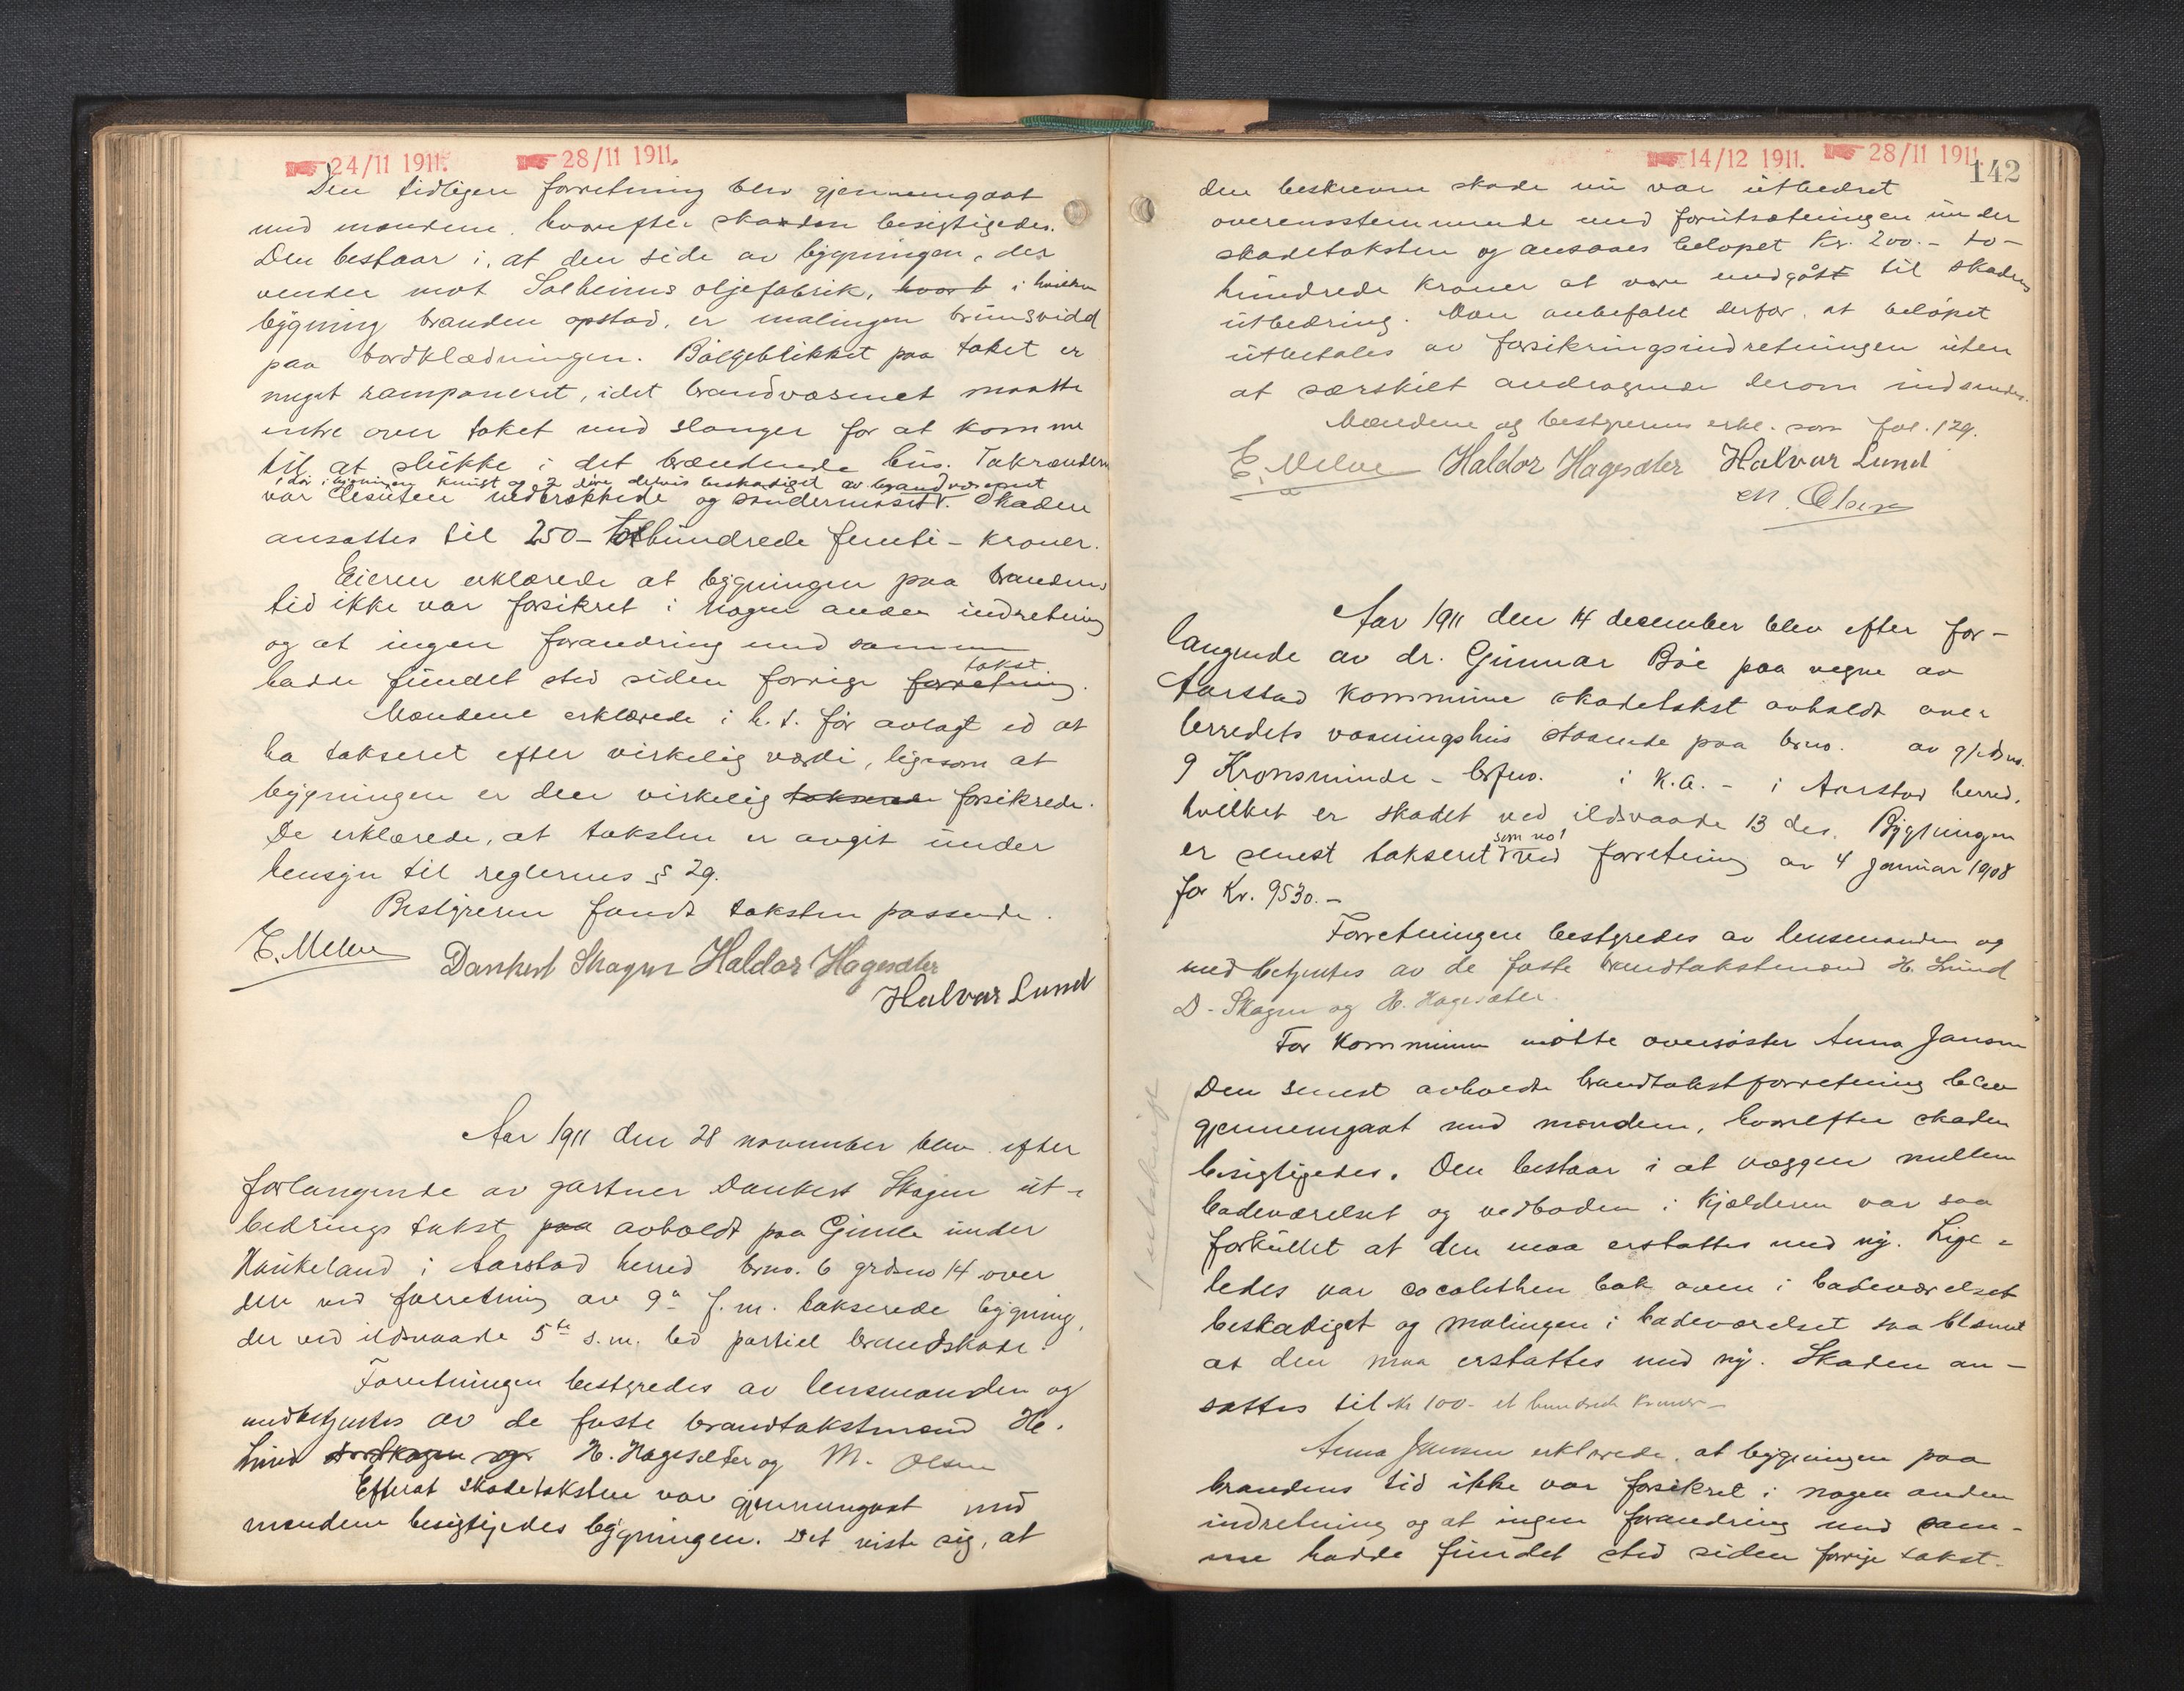 24/11 1911. 28/11 1911.
Den tidligere forretning blev gjennemgaat
med mændene, hvorefter skaden besigtigedes.
Den bestaar i, at den side av bygningen, der
vender mot Solheims oljefabrik, hvor b i hvilken
bygning branden opstod, er malingen brunsvidd
paa bordklædningen. Bølgeblikket paa taket er
meget ramponeret, idet brandvæsenet maatte
entre over taket med slanger for at komme
til at slukke i det brændende hus. Takrenderne
1 dør i bygningen knust og 2 døre delvis beskadiget av brandvæsenet
var desuten nedtrækkede og sønderrevset. Skaden
ansattes til 250 - tohundrede femti - kroner.
Eieren erklærede at bygningen paa brandens
tid ikke var forsikret i nogen anden indretning
og at ingen forandring med samme
takst
hadde fundet sted siden forrige forretning.
Mændene erklærede i h. t. før avlagt ed at
ha takseret efter virkelig værdi, ligesom at
bygningen er den virkelig takserede forsikrede.
De erklærede, at taksten er avgit under
hensyn til reglernes § 29.
Bestyreren fandt taksten passende.
E. Melve Dankert Skagen Haldor Hagesæter
Halvar Lund
Aar 1911 den 28 november blev efter
forlangende av gartner Dankert Skagen ut-
bedrings takst paa avholdt paa Gimle under
Haukeland i Aarstad herred brno. 6 grdsno 14 over
den ved forretning av 9de f. m. takserede bygning,
der ved ildsvaade 5te s. m. led partiel brandskade.
Forretningen bestyredes av lensmanden og
medbetjentes av de faste brandtakstmænd H.
Lund D. Skagen og H. Hagesæter og M. Olsen
Efterat skadetaksten var gjennemgaat med
mændene besigtigedes bygningen. Det viste sig, at
14/12 1911. 28/11 1911.
142
den beskrevne skade nu var utbedret
overensstemmende med forutsætningen under
skadetaksten og ansaaes beløpet Kr. 200.- to-
hundrede kroner at være medgått til skadens
utbedring. Man anbefalet derfor, at beløpet
utbetales av forsikringsindretningen uten
at særskilt andragende derom indsendes.
Mændene og bestyrerens erkl. som fol. 129.
E. Melve Haldor Hagesæter Halvar Lund
M. Olsen
Aar 1911 den 14 desember blev efter for-
langende av dr. Gunnar Bøe paa vegne av
Aarstad kommune skadetakst avholdt over
herredets vaaningshus staaende paa brno. av grdsno.
9 Kronsminde - brfno. i K.a. - i Aarstad herred,
hvilket er skadet ved ildsvaade 13 des. Bygningen
som no 1
er senest takseret ved forretning av 4 januar 1908
for Kr. 9530.-
Forretningen bestyredes av lensmanden og
medbetjentes av de faste brandtakstmænd H. Lund
D. Skagen og H. Hagesæter.
For kommunen møtte oversøster Anna Jansen
Den senest avholdte brandtakstforretning blev
gjennemgaat med mændene, hvorefter skaden
besigtigedes. Den bestaar i at væggen mellem
badeværelset og vedboden i kjælderen var saa
forkullet at den maa erstattes med ny. Lige-
ledes var cocolithen bak oven i badeværelset
beskadiget og malingen i badeværelset saa blæmet
at den maa erstattes med ny. Skaden an-
sattes til Kr 100.- et hundrede kroner -
Anna Jansen erklærede, at bygningen paa
brandens tid ikke var forsikret i nogen anden
indretning og at ingen forandring med sam-
me hadde fundet sted siden forrige takst.
1 utskrift